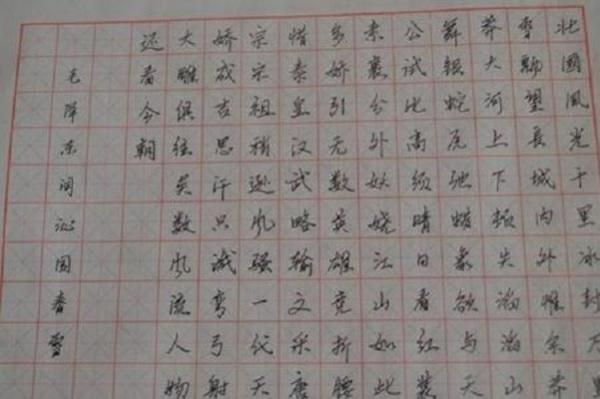 北國風光千里冰封万里
雪飘望長城内外惟余莽
莽大河上下顿失滔滔山
舞银蛇原驰蜡象欲与天
公试比高须晴日看红装
素裹分外妖娆江山如此
多娇引无数英雄竞折腰
惜秦皇汉武略输文采唐
宗宋祖稍逊风骚一代天
娇成吉思汗只识弯弓射
大雕俱往矣数风流人物
还看今朝
毛泽东词沁园春雪